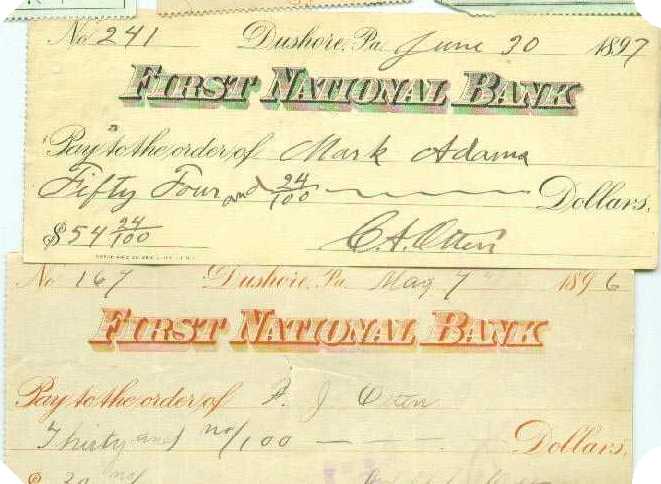 No 241 Dushore, Pa. June 30 1897
FIRST NATIONAL BANK
Pay to the order of Mark Adams
Fifty Four and 24/100 Dollars.
$54 24/100 C. A. Otten
No 167 Dushore, Pa. May 7 1896
FIRST NATIONAL BANK
Pay to the order of J Otten
Thirty and no/100 Dollars.
$ 30 no